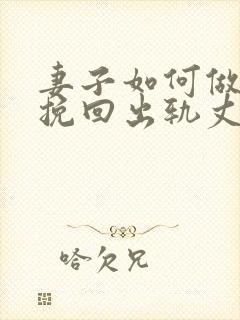 妻子如何做
挽回出轨丈
哈欠兄